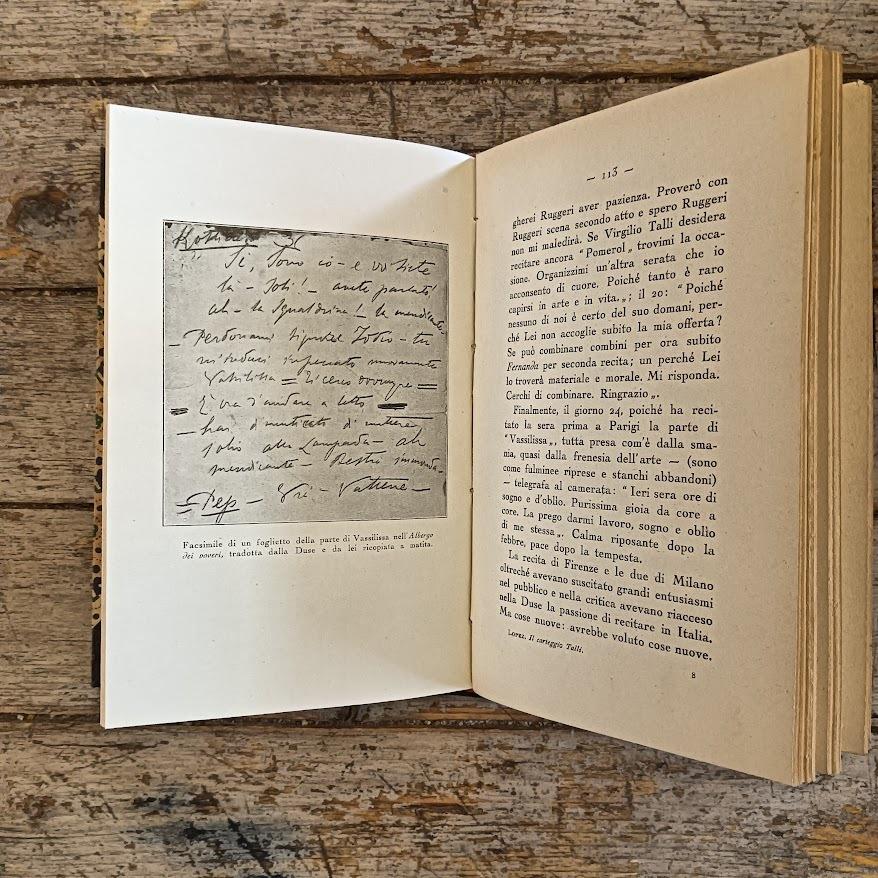 Sì, sono io - e voi siete
- Perdonami
Vassilissa =
È ora d'andare a letto
alla Lampada - ah
= Pep -
Facsimile di un foglietto della parte di Vassilissa nell'Albergo
dei poveri, tradotta dalla Duse e da lei ricopiata a matita.
— 113 —
gherei Ruggeri aver pazienza. Proverò con
Ruggeri scena secondo atto e spero Ruggeri
non mi maledirà. Se Virgilio Talli desidera
recitare ancora "Pomerol„ trovimi la occa-
sione. Organizzimi un'altra serata che io
acconsento di cuore. Poiché tanto è raro
capirsi in arte e in vita.„; il 20: "Poiché
nessuno di noi è certo del suo domani, per-
ché Lei non accoglie subito la mia offerta?
Se può combinare combini per ora subito
Fernanda per seconda recita; un perché Lei
lo troverà materiale e morale. Mi risponda.
Cerchi di combinare. Ringrazio„.
Finalmente, il giorno 24, poiché ha reci-
tato la sera prima a Parigi la parte di
"Vassilissa„, tutta presa com'è dalla sma-
nia, quasi dalla frenesia dell'arte — (sono
come fulminee riprese e stanchi abbandoni)
— telegrafa al camerata: "Ieri sera ore di
sogno e d'oblio. Purissima gioia da core a
core. La prego darmi lavoro, sogno e oblìo
di me stessa„. Calma riposante dopo la
febbre, pace dopo la tempesta.
La recita di Firenze e le due di Milano
oltreché avevano suscitato grandi entusiasmi
nel pubblico e nella critica avevano riacceso
nella Duse la passione di recitare in Italia.
Ma cose nuove: avrebbe voluto cose nuove.
Lopez. Il carteggio Talli.
8